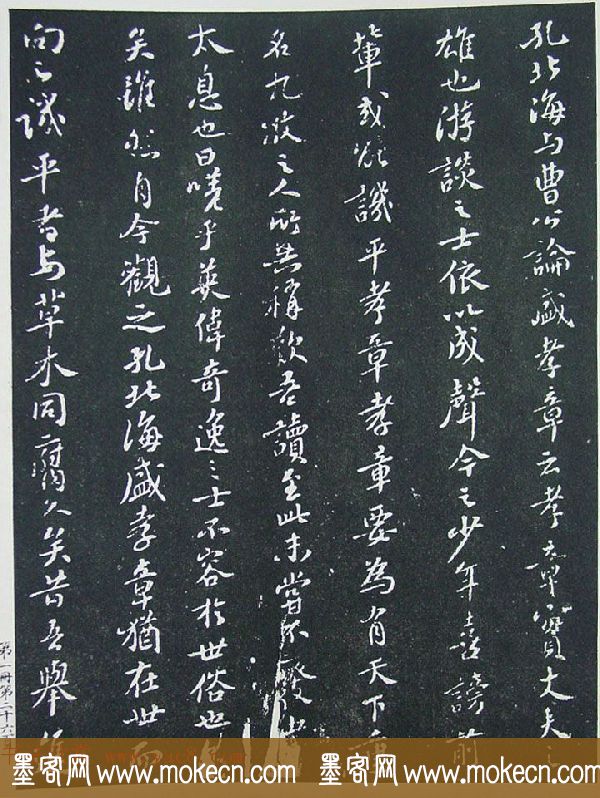 孔北海与曹公論盛孝章云孝章實丈夫之
雄也游談之士依以成聲今之少年喜謗前
輩或能譏平孝章孝章要為有天下重
名九牧之人所共稱歎吾讀至此未嘗不廢書
太息也曰嗟乎英偉奇逸之士不容於世俗也久
矣雖然自今觀之孔北海盛孝章猶在世而
向之譏平者与草木同腐久矣昔吾舉進
第一冊第二十六
墨客网 www.mokecn.com 墨客网 www.mokecn.com